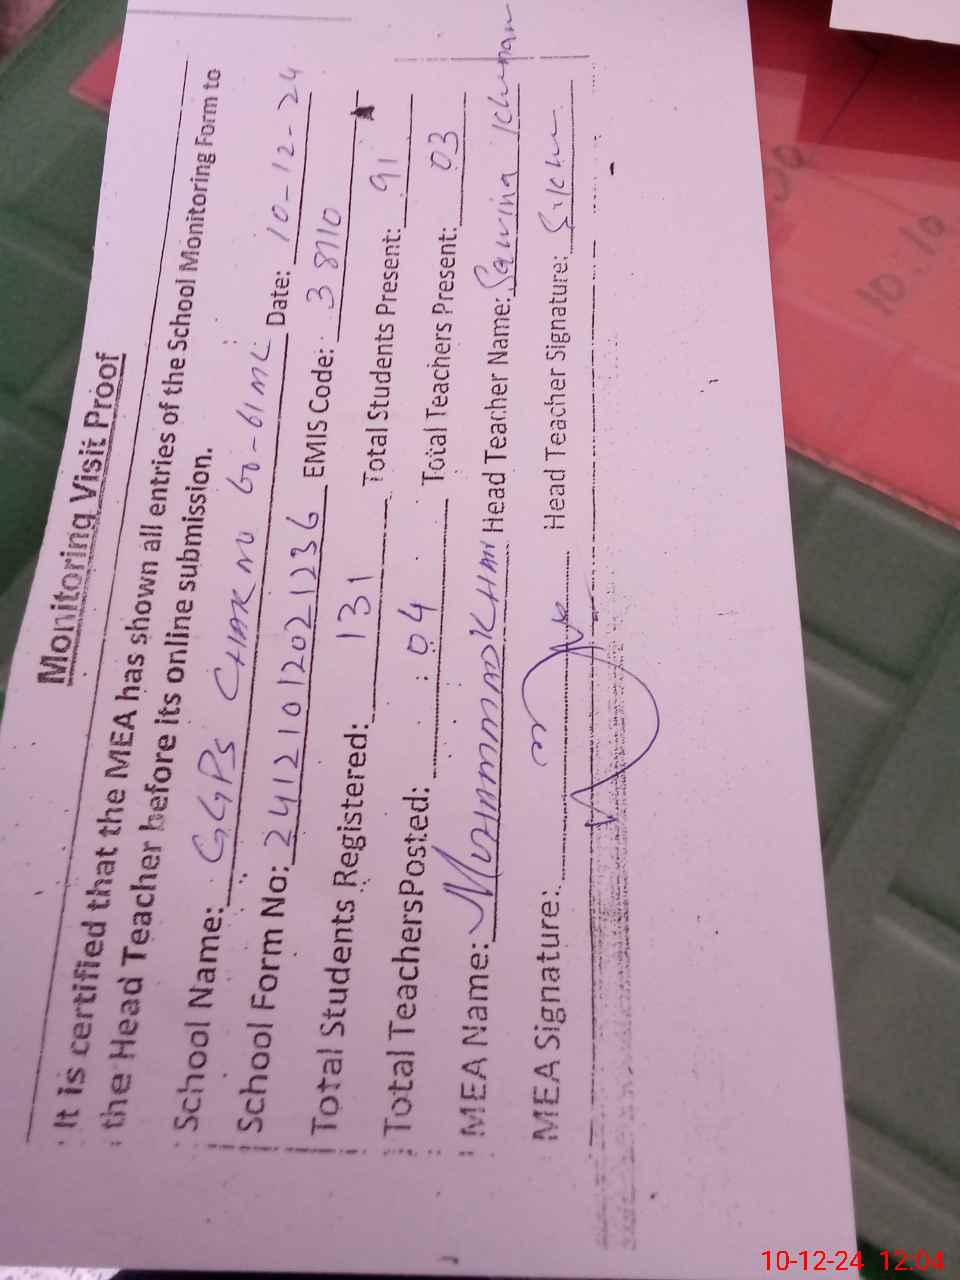 Monitoring Visit Proof
It is certified that the MEA has shown all entries of the School Monitoring Form to
the Head Teacher before its online submission.
School Name: GGPS CHAK NO 60-61 ML Date: 10-12-24
School Form No: 241210120211236 EMIS Code: 38110
Total Students Registered: 131 Total Students Present: 91
Total TeachersPosted: 04 Total Teachers Present: 03
MEA Name: MUHAMMAD KHAN Head Teacher Name:
MEA Signature: Head Teacher Signature:
10.10
10-12-24 12:04